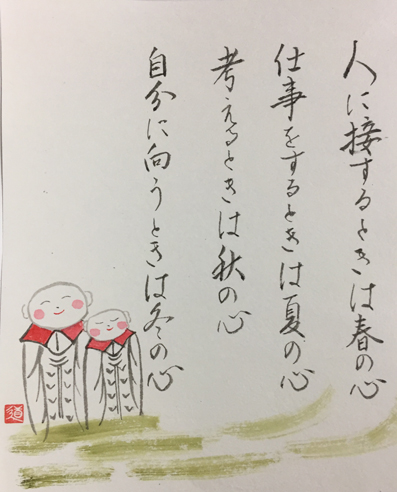 人に接するときは春の心
仕事をするときは夏の心
考えるときは秋の心
自分に向うときは冬の心